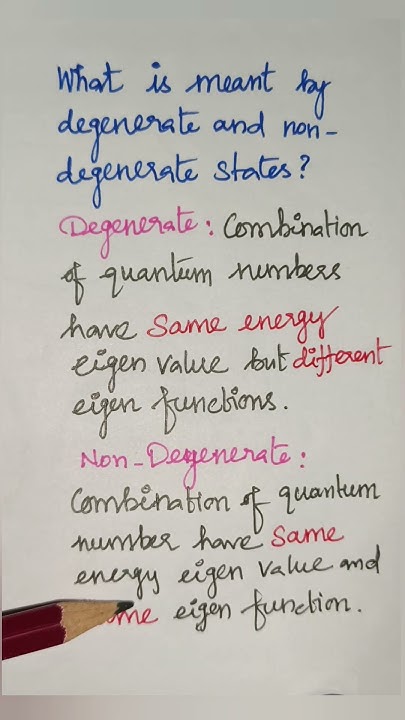 What is meant by
degenerate and non-
degenerate states?
Degenerate: Combination
of quantum numbers
have Same energy
eigen value but different
eigen functions.
Non-Degenerate:
Combination of quantum
number have Same
energy eigen value and
eigen function.